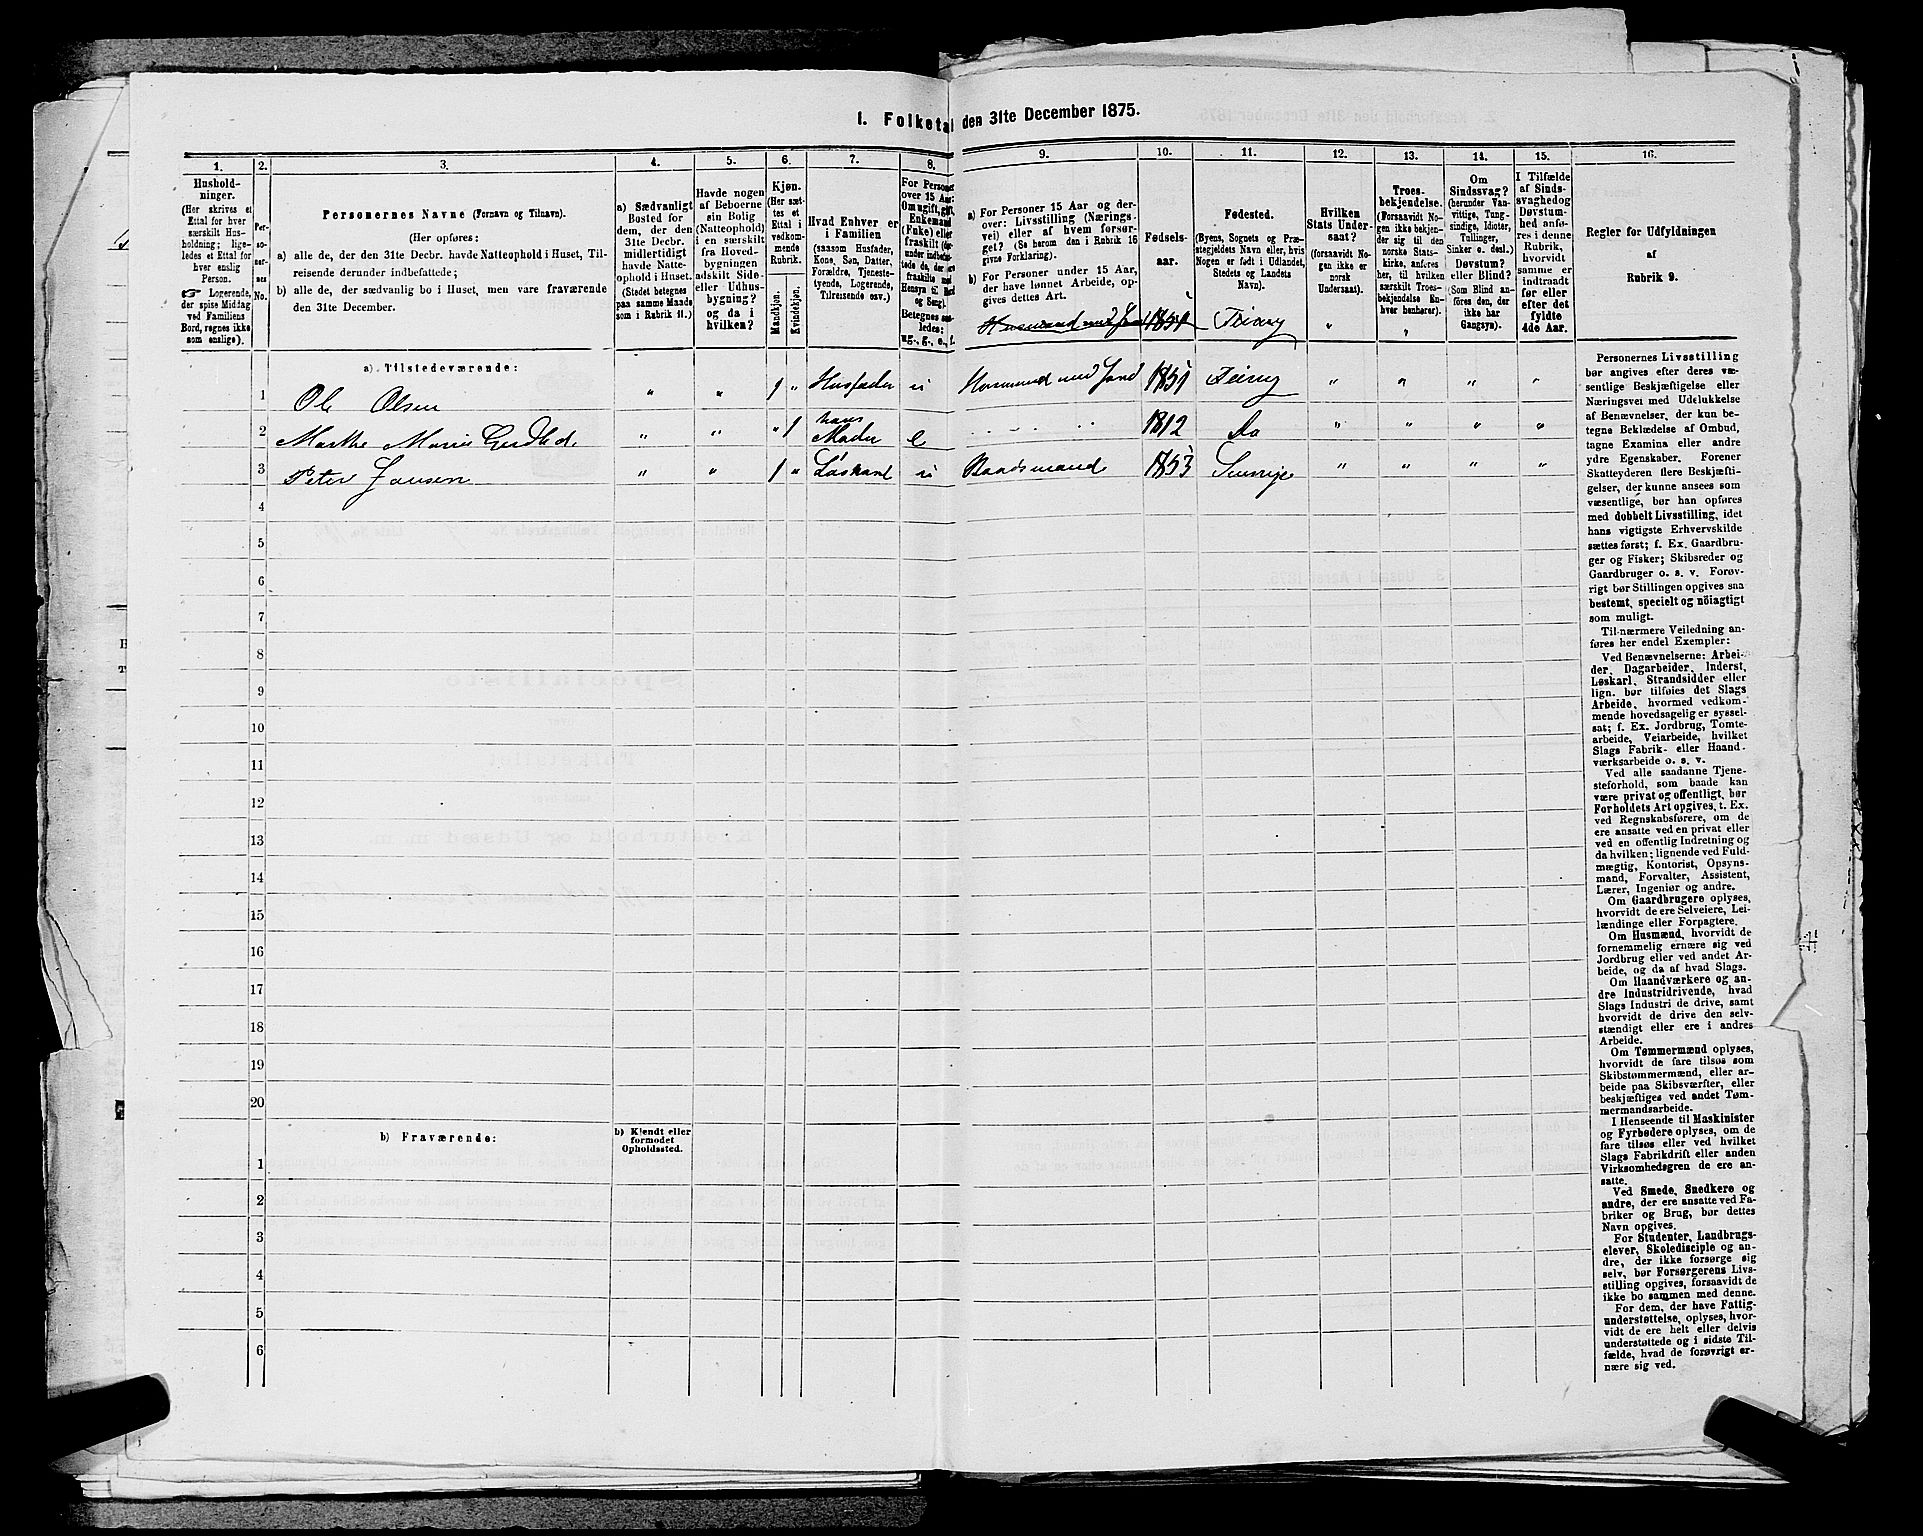 1. Folketal den 31te December 1875.
1. 2. 3. 4. 5. 6. 7. 8. 9. 10. 11. 12. 13. 14. 15. 16.
Hushold-
ninger.
(Her skrives et
Ettal for hver
særskilt Hus-
holdning; lige-
ledes et Ettal for
hver enslig
Person.
Logerende,
der spise Middag
ved Familiens
Bord, regnes ikke
som enslige).
Per-
so-
ner-
nes
No.
Personernes Navne (Fornavn og Tilnavn).
(Her opføres:
a) alle de, der den 31te Decbr. havde Natteophold i Huset, Til-
reisende derunder indbefattede;
b) alle de, der sædvanlig bo i Huset, men vare fraværende
den 31te December.
a) Sædvanligt
Bosted for
dem, der den
31te Decbr.
midlertidigt
havde Natte-
ophold i Huset.
(Stedet betegnes
paa samme Maade
som i Rubrik 11.)
Havde nogen
af Beboerne
sin Bolig
(Natteophold)
i en særskilt
fra Hoved-
bygningen
adskilt Side-
eller Udhus-
bygning?
og da i
hvilken?
Kjøn.
(Her sæt-
tes et
Ettal i
vedkom-
mende
Rubrik.
Mandkjøn.
Kvindekjøn.
Hvad Enhver er
i Familien
(saasom Husfader,
Kone, Søn, Datter,
Forældre, Tjeneste-
tyende, Logerende,
Tilreisende osv.)
For Personer
over 15 Aar:
Om ugift, gift,
Enkemand
(Enke) eller
fraskilt
Betegnes saa-
ledes:
ug., g., e., f.
a) For Personer 15 Aar og der-
over: Livsstilling (Nærings-
vei) eller af hvem forsør-
get? (Se herom den i Rubrik 16
givne Forklaring).
b) For Personer under 15 Aar,
der have lønnet Arbeide, op-
gives dettes Art.
Fødsels-
aar.
Fødested.
(Byens, Sognets og Præ-
stegjeldets Navn eller, hvis
Nogen er født i Udlandet,
Stedets og Landets
Navn).
Hvilken
Stats Under-
saat?
(forsaavidt No-
gen ikke er
norsk
Undersaat).
Troes-
bekjendelse.
(Forsaavidt No-
gen ikke bekjen-
der sig til den
norske Stats-
kirke, anføres
her, til hvilken
særskilt Troes-
bekjendelse En-
hver henhører).
Om
Sindssvag?
(herunder Van-
vittige, Tung-
sindige, Idioter,
Tullinger,
Sinker o. desl.)
Døvstum?
eller Blind?
(Som Blind an-
føres den, der
ikke har
Gangsyn).
I Tilfælde
af Sinds-
svaghed og
Døvstum-
hed anfø-
res i denne
Rubrik,
hvorvidt
samme er
indtraadt
før eller
efter det
fyldte
4de Aar.
Regler for Udfyldningen
af
Rubrik 9.
Husmand med Jord 1851 "
a) Tilstedeværende:
1 Ole Olsen " " 1 " Husfader Husmand med Jord 1851 Feiring " " " "
2 Marthe Marie " " " 1 hans Moder e 1812 Do " " " "
3 Peter Jansen " " 1 " Løskarl Baadsmand 1853 Sverrige " " " "
4
5
6
7
8
9
10
11
12
13
14
15
16
17
18
19
20
b) Fraværende:
b) Kjendt eller
formodet
Opholdssted.
1
2
3
4
5
6
Personernes Livsstilling
bør angives efter deres væ-
sentlige Beskjæftigelse eller
Næringsvei med Udelukkelse
af Benævnelser, der kun be-
tegne Beklædelse af Ombud,
tagne Examina eller andre
ydre Egenskaber. Forener
Skatteyderen flere Beskjæfti-
gelser, der kunne ansees som
væsentlige, bør han opføres
med dobbelt Livsstilling, idet
hans vigtigste Erhvervskilde
sættes først; f. Ex. Gaardbru-
ger og Fisker; Skibsreder og
Gaardbruger o. s. v. Forøv-
rigt bør Stillingen opgives saa
bestemt, specielt og nöiagtigt
som muligt.
Til nærmere Veiledning an-
føres her endel Exempler:
Ved Benævnelserne: Arbei-
der, Dagarbeider, Inderst,
Løskarl, Strandsidder eller
lign. bør tilføies det Slags
Arbeide, hvormed vedkom-
mende hovedsagelig er syssel-
sat; f. Ex. Jordbrug, Tomte-
arbeide, Veiarbeide, hvilket
Slags Fabrik- eller Haand-
værksarbeide o. s. v.
Ved alle saadanne Tjene-
steforhold, som baade kan
være privat og offentligt, bør
Forholdets Art opgives, t. Ex.
ved Regnskabsførere, om de
ere ansatte ved en privat eller
ved en offentlig Indretning og
da hvilken; lignende ved Fuld-
mægtig, Kontorist, Opsyns-
mand, Forvalter, Assistent,
Lærer, Ingeniør og andre.
Om Gaardbrugere oplyses,
hvorvidt de ere Selveiere, Lei-
lændinge eller Forpagtere.
Om Husmænd, hvorvidt de
fornemmelig ernære sig ved
Jordbrug eller ved andet Ar-
beide, og da af hvad Slags.
Om Haandværkere og an-
dre Industridrivende, hvad
Slags Industri de drive, samt
hvorvidt de drive den selv-
stændigt eller ere i andres
Arbeide.
Om Tømmermænd oplyses,
hvorvidt de fare tilsøs som
Skibstømmermænd, eller ar-
beide paa Skibsværfter, eller
beskjæftiges ved andet Tøm-
mermandsarbeide.
I Henseende til Maskinister
og Fyrbødere oplyses, om de
fare tilsøs eller ved hvilket
Slags Fabrikdrift eller anden
Virksomhedsgren de ere an-
satte.
Ved Smede, Snedkere og
andre, der ere ansatte ved Fa-
briker og Brug, bør dettes
Navn opgives.
For Studenter, Landbrugs-
elever, Skoledisciple og an-
dre, der ikke forsørge sig
selv, bør Forsørgerens Livs-
stilling opgives, forsaavidt de
ikke bo sammen med denne.
For dem, der have Fattig-
understøttelse, oplyses, hvor-
vidt de ere helt eller delvis
understøttede og i sidste Til-
fælde, hvad de forøvrigt er-
nære sig ved.